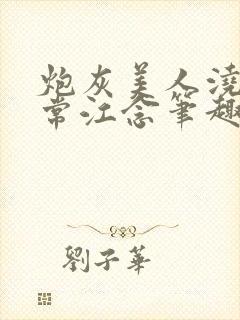 炮灰美人澆
常江念筆趣
劉子華